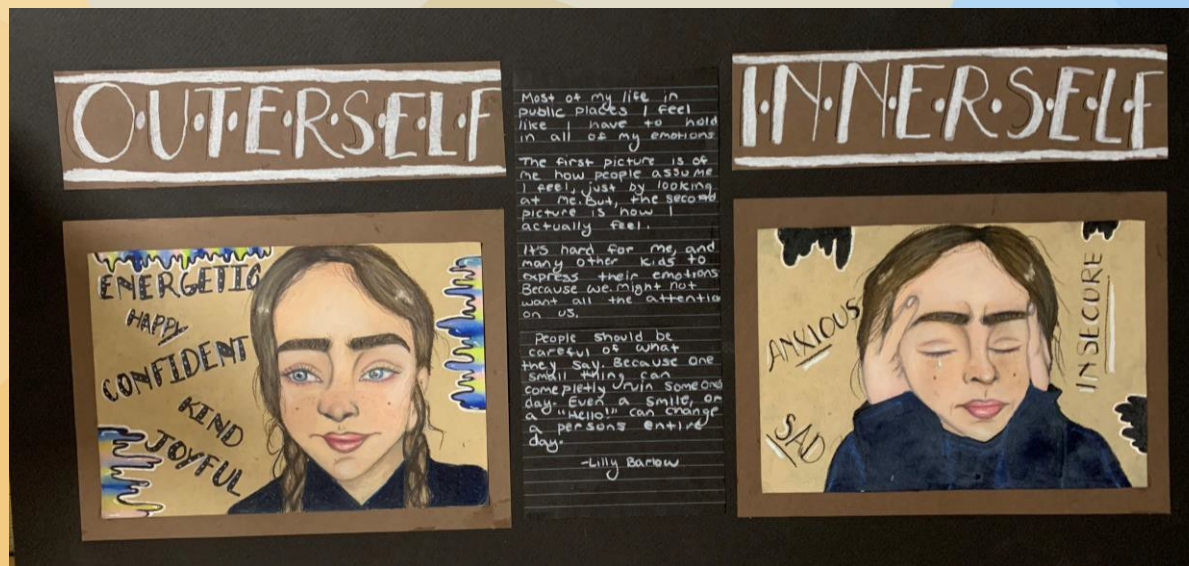 O·U·T·E·R·S·E·L·F
ENERGETIC
HAPPY
CONFIDENT
KIND
JOYFUL
Most of my life in
public places I feel
like I have to hold
in all of my emotions
The first picture is of
me how people assume
I feel, just by looking
at me. But, the second
picture is how I
actually feel.
It's hard for me, and
many other kids to
express their emotions
Because we might not
want all the attentio
on us.
People should be
careful of what
they say. Because one
small thing can
completly ruin someons
day. Even a smile, or
a "Hello!" can change
a persons entire
day.
-Lilly Barlow
I·N·N·E·R·S·E·L·F
ANXIOUS
SAD
INSECURE